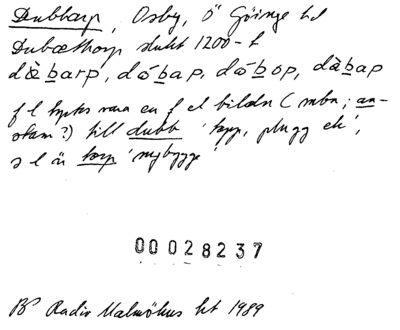 Dubbarp, Osby, Ö Göinge hd
Dubæthorp slutet 1200-t
dàbarp, dóbap, dóbop, dàbap
f l tycks vara en f el bildn (mbn; an-
tam?) till dubb 'tapp, plugg etc',
s l är torp 'nybygge'
00028237
BP Radio Malmöhus ht 1989